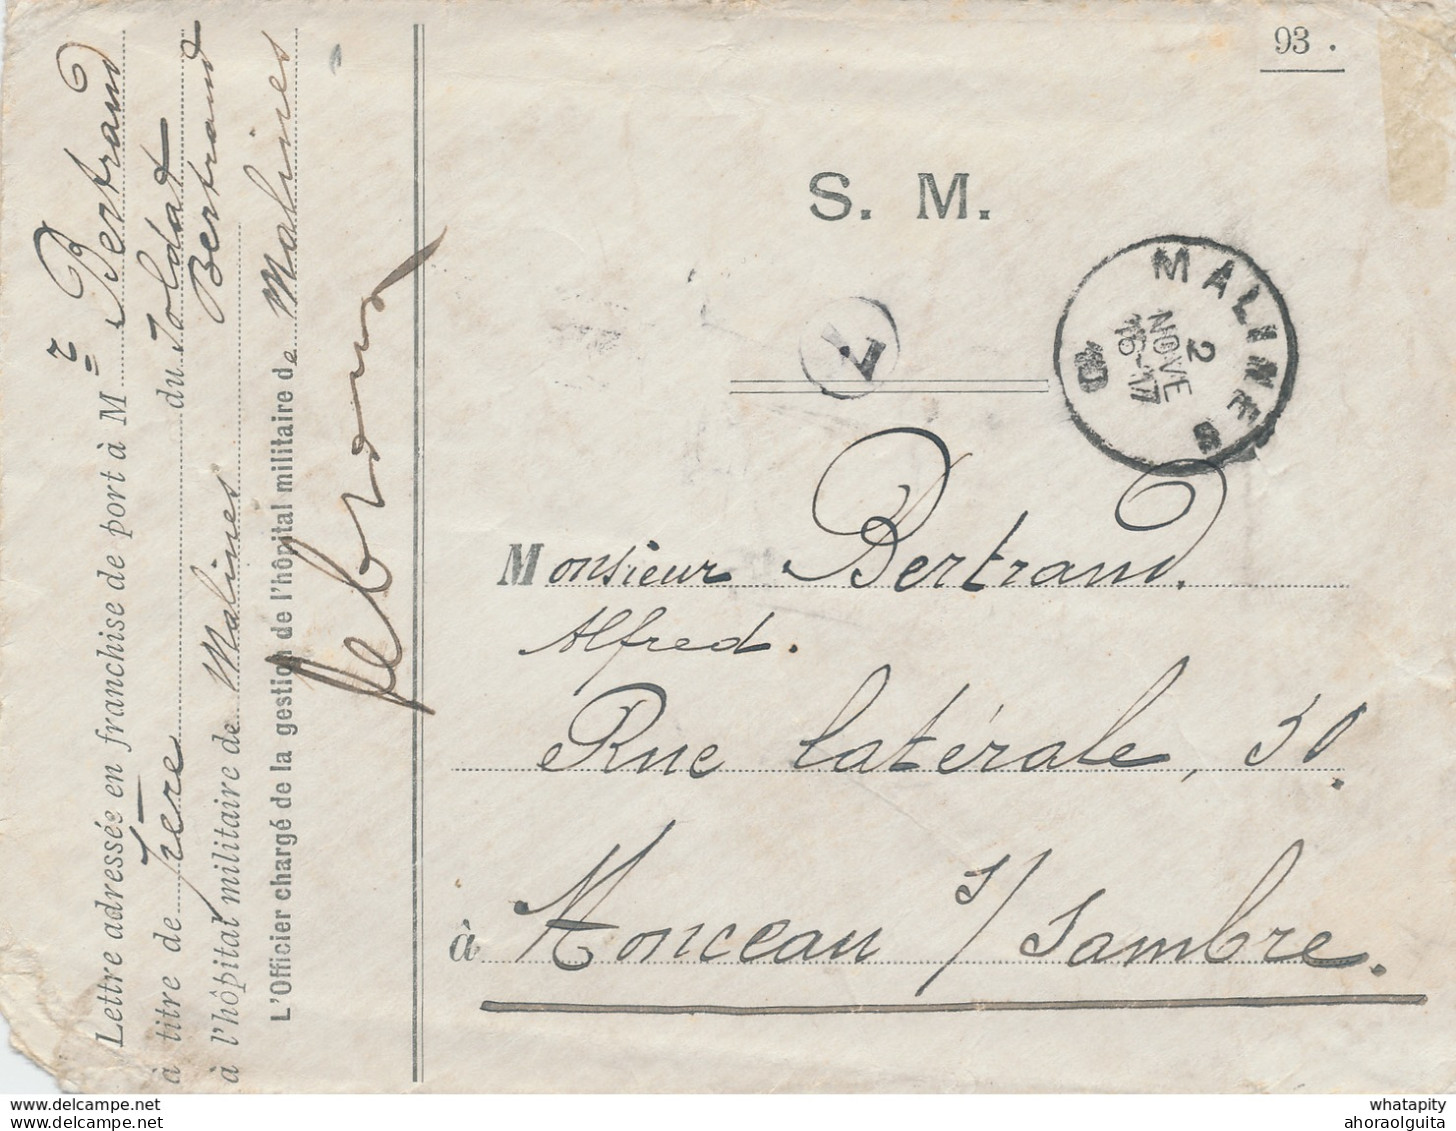 93.
S. M.
MALINES
2
NOVE
16-17
10
7
Monsieur Bertrand.
Alfred.
Rue latérale, 30.
à Monceau s/Sambre.
Lettre adressée en franchise de port à Mr Bertrand
à titre de frère du Soldat Bertrand
à l'hôpital militaire de Malines
L'Officier chargé de la gestion de l'hôpital militaire de Malines
whatapity
whatapity
ahoraolguita
ahoraolguita